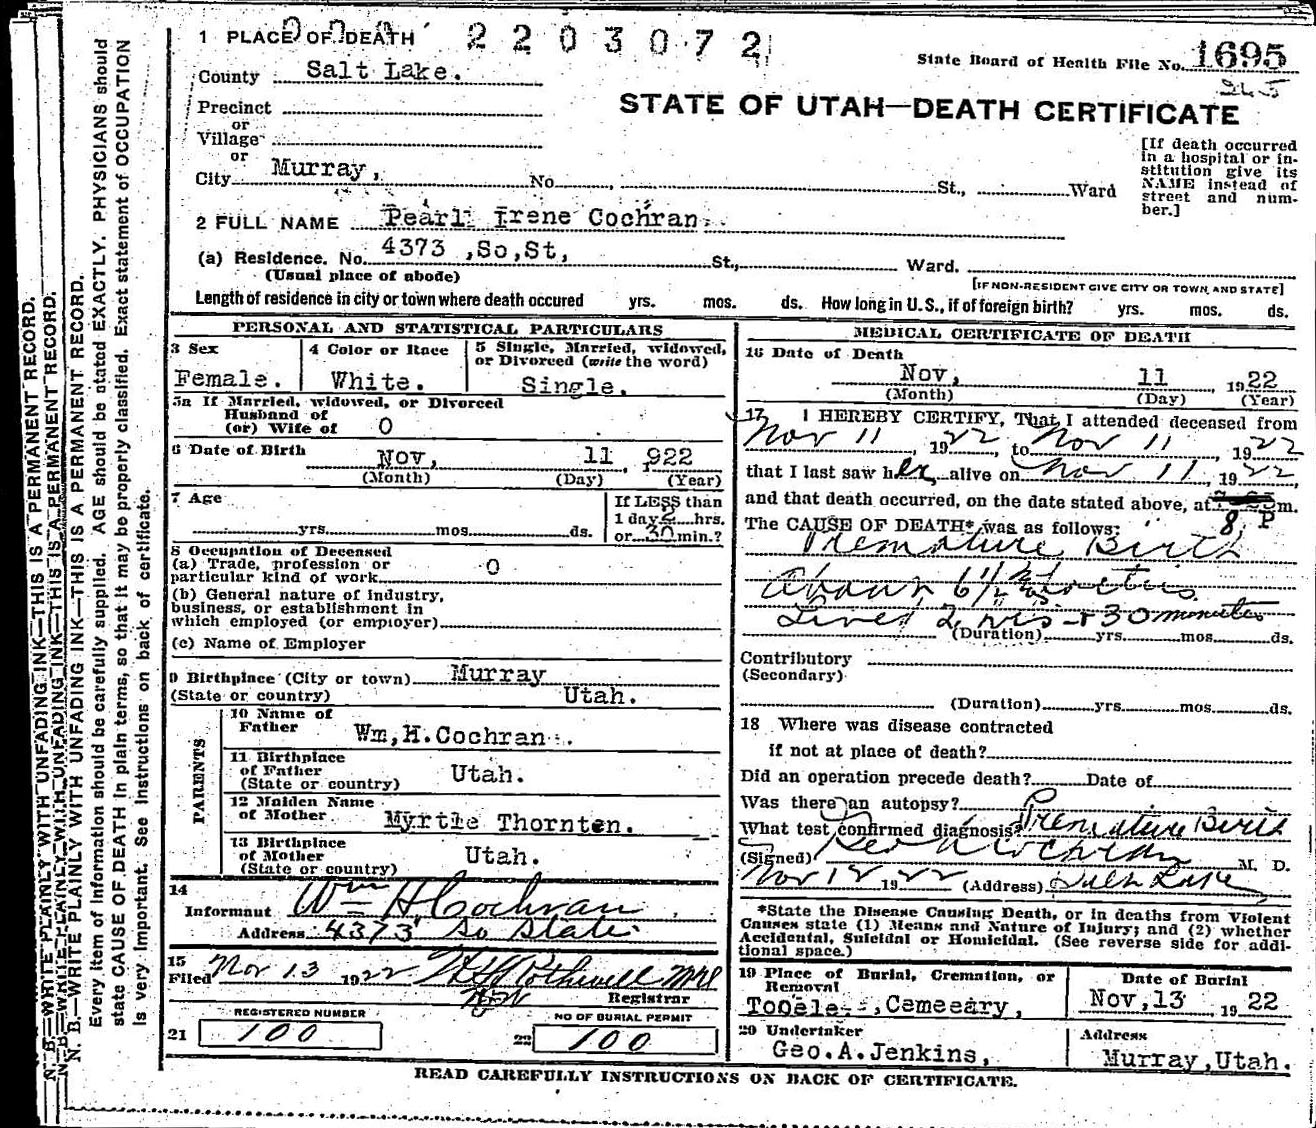 1 PLACE OF DEATH 2203072
State Board of Health File No. 1695
265
County Salt Lake.
STATE OF UTAH—DEATH CERTIFICATE
Precinct
or
Village
or
City Murray, No. St., Ward
[If death occurred in a hospital or in-
stitution give its
NAME instead of
street and num-
ber.]
2 FULL NAME Pearl Irene Cochran
(a) Residence. No. 4373 ,So,St, St., Ward.
(Usual place of abode)
[IF NON-RESIDENT GIVE CITY OR TOWN AND STATE]
Length of residence in city or town where death occured yrs. mos. ds. How long in U.S., if of foreign birth? yrs. mos. ds.
PERSONAL AND STATISTICAL PARTICULARS
3 Sex
Female.
4 Color or Race
White.
5 Single, Married, widowed,
or Divorced (write the word)
Single.
5a If Married, widowed, or Divorced
Husband of
(or) Wife of O
6 Date of Birth Nov, 11 , 922
(Month) (Day) (Year)
7 Age
yrs. mos. ds.
If LESS than
1 day 2 hrs.
or 30 min.?
8 Occupation of Deceased
(a) Trade, profession or
particular kind of work O
(b) General nature of industry,
business, or establishment in
which employed (or employer)
(c) Name of Employer
9 Birthplace (City or town) Murray
(State or country) Utah.
PARENTS
10 Name of
Father Wm,H.Cochran.
11 Birthplace
of Father Utah.
(State or country)
12 Maiden Name
of Mother Myrtle Thornten.
13 Birthplace
of Mother Utah.
(State or country)
14
Informant Wm H Cochran
Address 4373 So State
15
Filed Nov 13 1922 Rothwell
Registrar
REGISTERED NUMBER
21 100
NO OF BURIAL PERMIT
22 100
MEDICAL CERTIFICATE OF DEATH
16 Date of Death
Nov, 11 , 1922
(Month) (Day) (Year)
17 I HEREBY CERTIFY, That I attended deceased from
Nov 11 , 1922, to Nov 11 , 1922
that I last saw her alive on Nov 11 , 1922,
and that death occurred, on the date stated above, at m.
8 P
The CAUSE OF DEATH* was as follows:
Premature Birth
About 6 1/2 months
Lived 2 hrs + 30 minutes
(Duration) yrs. mos. ds.
Contributory
(Secondary)
(Duration) yrs. mos. ds.
18 Where was disease contracted
if not at place of death?
Did an operation precede death? Date of
Was there an autopsy?
What test confirmed diagnosis? Premature Birth
(Signed) Cochran M. D.
Nov 12 1922 (Address) Salt Lake
*State the Disease Causing Death, or in deaths from Violent
Causes state (1) Means and Nature of Injury; and (2) whether
Accidental, Suicidal or Homicidal. (See reverse side for addi-
tional space.)
19 Place of Burial, Cremation, or
Removal
Tooele ,Cemeeary,
Date of Burial
Nov,13 1922
20 Undertaker
Geo.A.Jenkins,
Address
Murray,Utah.
READ CAREFULLY INSTRUCTIONS ON BACK OF CERTIFICATE.
N. B.—WRITE PLAINLY WITH UNFADING INK—THIS IS A PERMANENT RECORD.
N. B.—WRITE PLAINLY WITH UNFADING INK—THIS IS A PERMANENT RECORD.
N. B.—WRITE PLAINLY WITH UNFADING INK—THIS IS A PERMANENT RECORD.
Every item of information should be carefully supplied. AGE should be stated EXACTLY. PHYSICIANS should
state CAUSE OF DEATH in plain terms, so that it may be properly classified. Exact statement of OCCUPATION
is very important. See instructions on back of certificate.